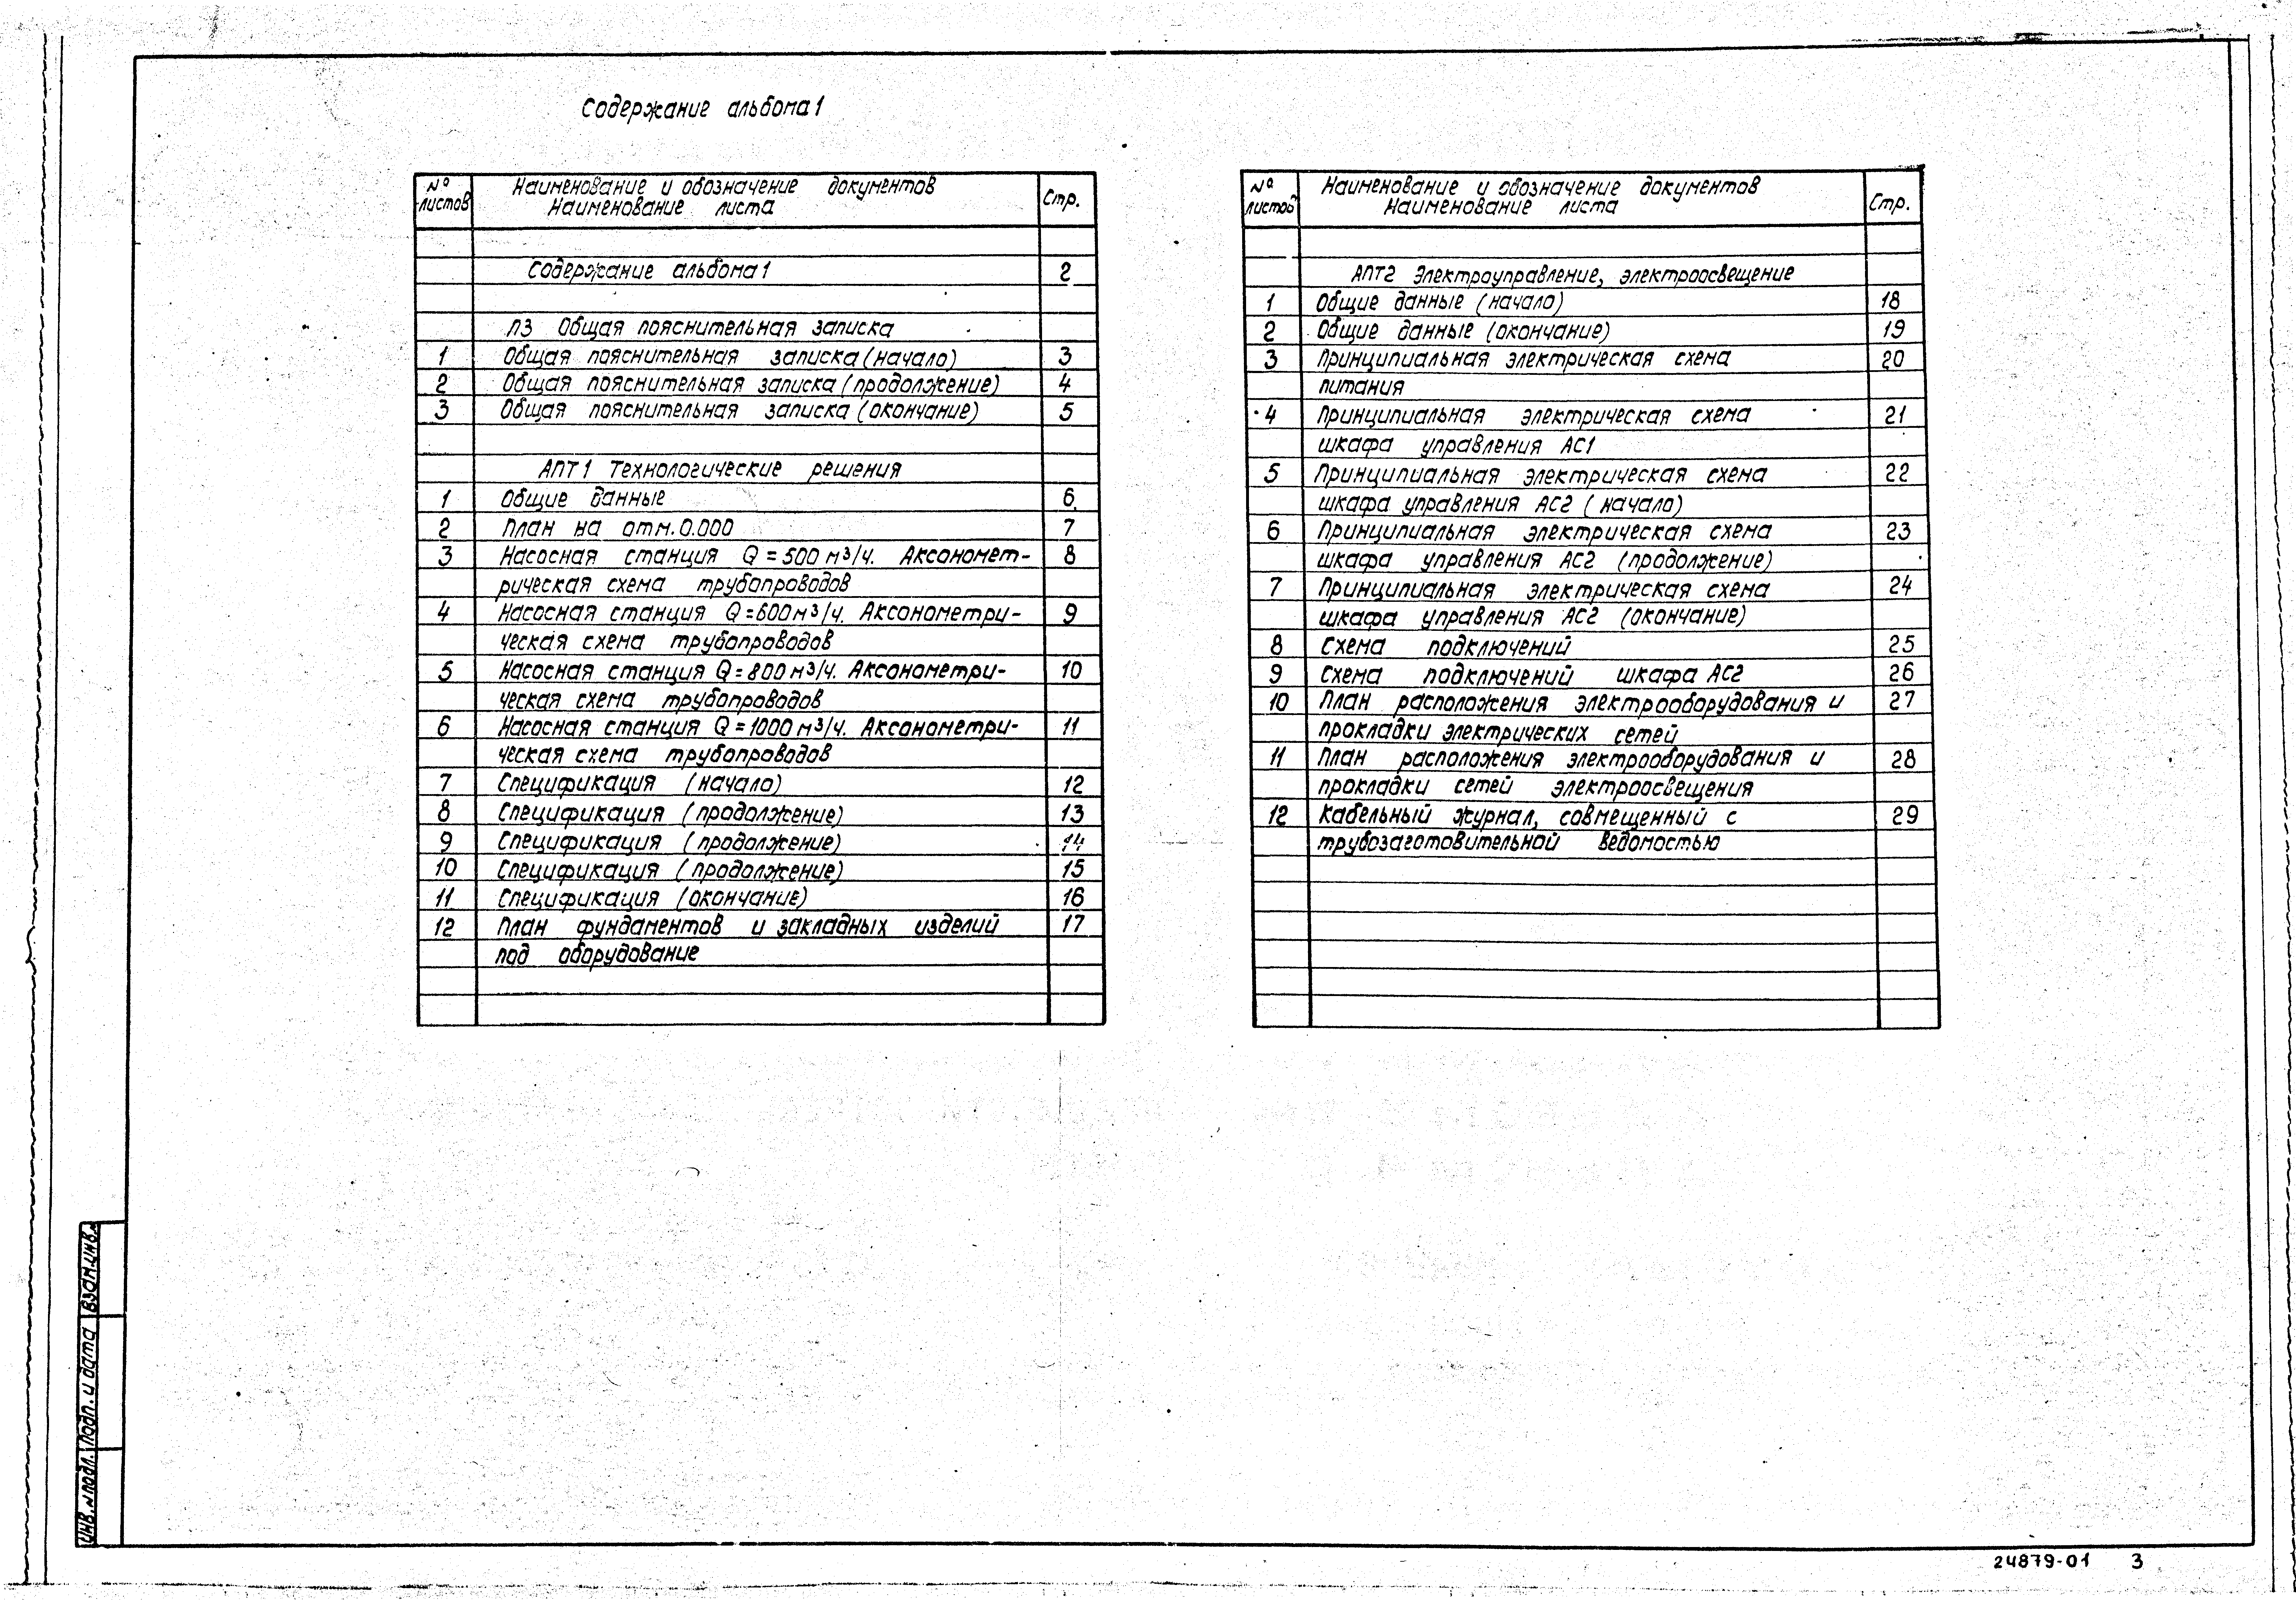 Содержание альбома 1
№ листов Наименование и обозначение документов Наименование листа Стр.
Содержание альбома 1 2
ПЗ Общая пояснительная записка
1 Общая пояснительная записка (начало) 3
2 Общая пояснительная записка (продолжение) 4
3 Общая пояснительная записка (окончание) 5
АПТ1 Технологические решения
1 Общие данные 6
2 План на отм. 0.000 7
3 Насосная станция Q = 500 м³/ч. Аксономет- 8
рическая схема трубопроводов
4 Насосная станция Q = 600 м³/ч. Аксонометри- 9
ческая схема трубопроводов
5 Насосная станция Q = 800 м³/ч. Аксонометри- 10
ческая схема трубопроводов
6 Насосная станция Q = 1000 м³/ч. Аксонометри- 11
ческая схема трубопроводов
7 Спецификация (начало) 12
8 Спецификация (продолжение) 13
9 Спецификация (продолжение) 14
10 Спецификация (продолжение) 15
11 Спецификация (окончание) 16
12 План фундаментов и закладных изделий 17
под оборудование
№ листов Наименование и обозначение документов Наименование листа Стр.
АПТ2 Электроуправление, электроосвещение
1 Общие данные (начало) 18
2 Общие данные (окончание) 19
3 Принципиальная электрическая схема 20
питания
4 Принципиальная электрическая схема 21
шкафа управления АС1
5 Принципиальная электрическая схема 22
шкафа управления АС2 (начало)
6 Принципиальная электрическая схема 23
шкафа управления АС2 (продолжение)
7 Принципиальная электрическая схема 24
шкафа управления АС2 (окончание)
8 Схема подключений 25
9 Схема подключений шкафа АС2 26
10 План расположения электрооборудования и 27
прокладки электрических сетей
11 План расположения электрооборудования и 28
прокладки сетей электроосвещения
12 Кабельный журнал, совмещенный с 29
трубозаготовительной ведомостью
Инв. № подл. Подп. и дата Взам. инв.
24879-01 3